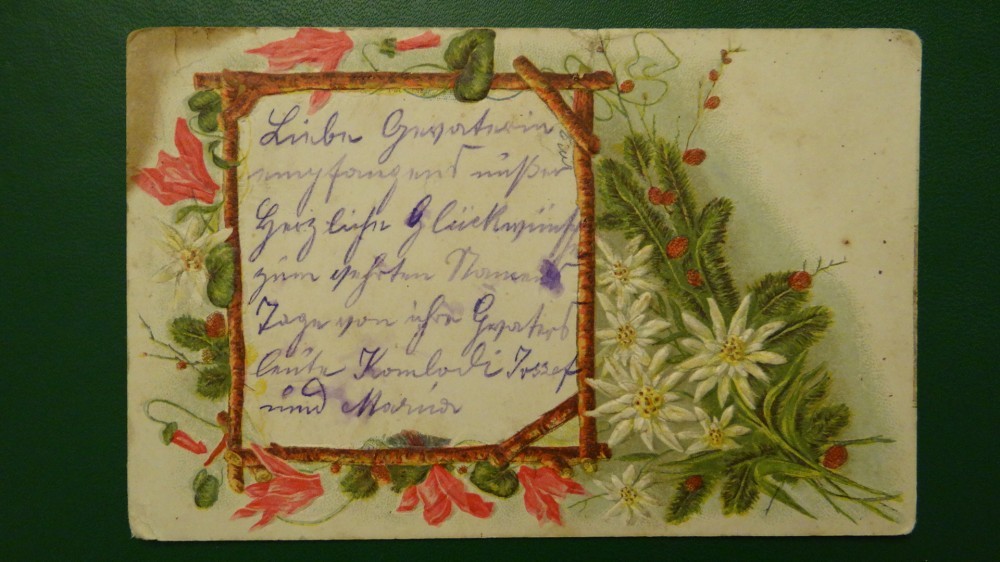 Liebe Gevaterin
empfangens unßer
Herzliche Glückwünsch
zum gehrten Namens
Tage von ihre Gvaters
leute Komlodi Jossef
und Maria